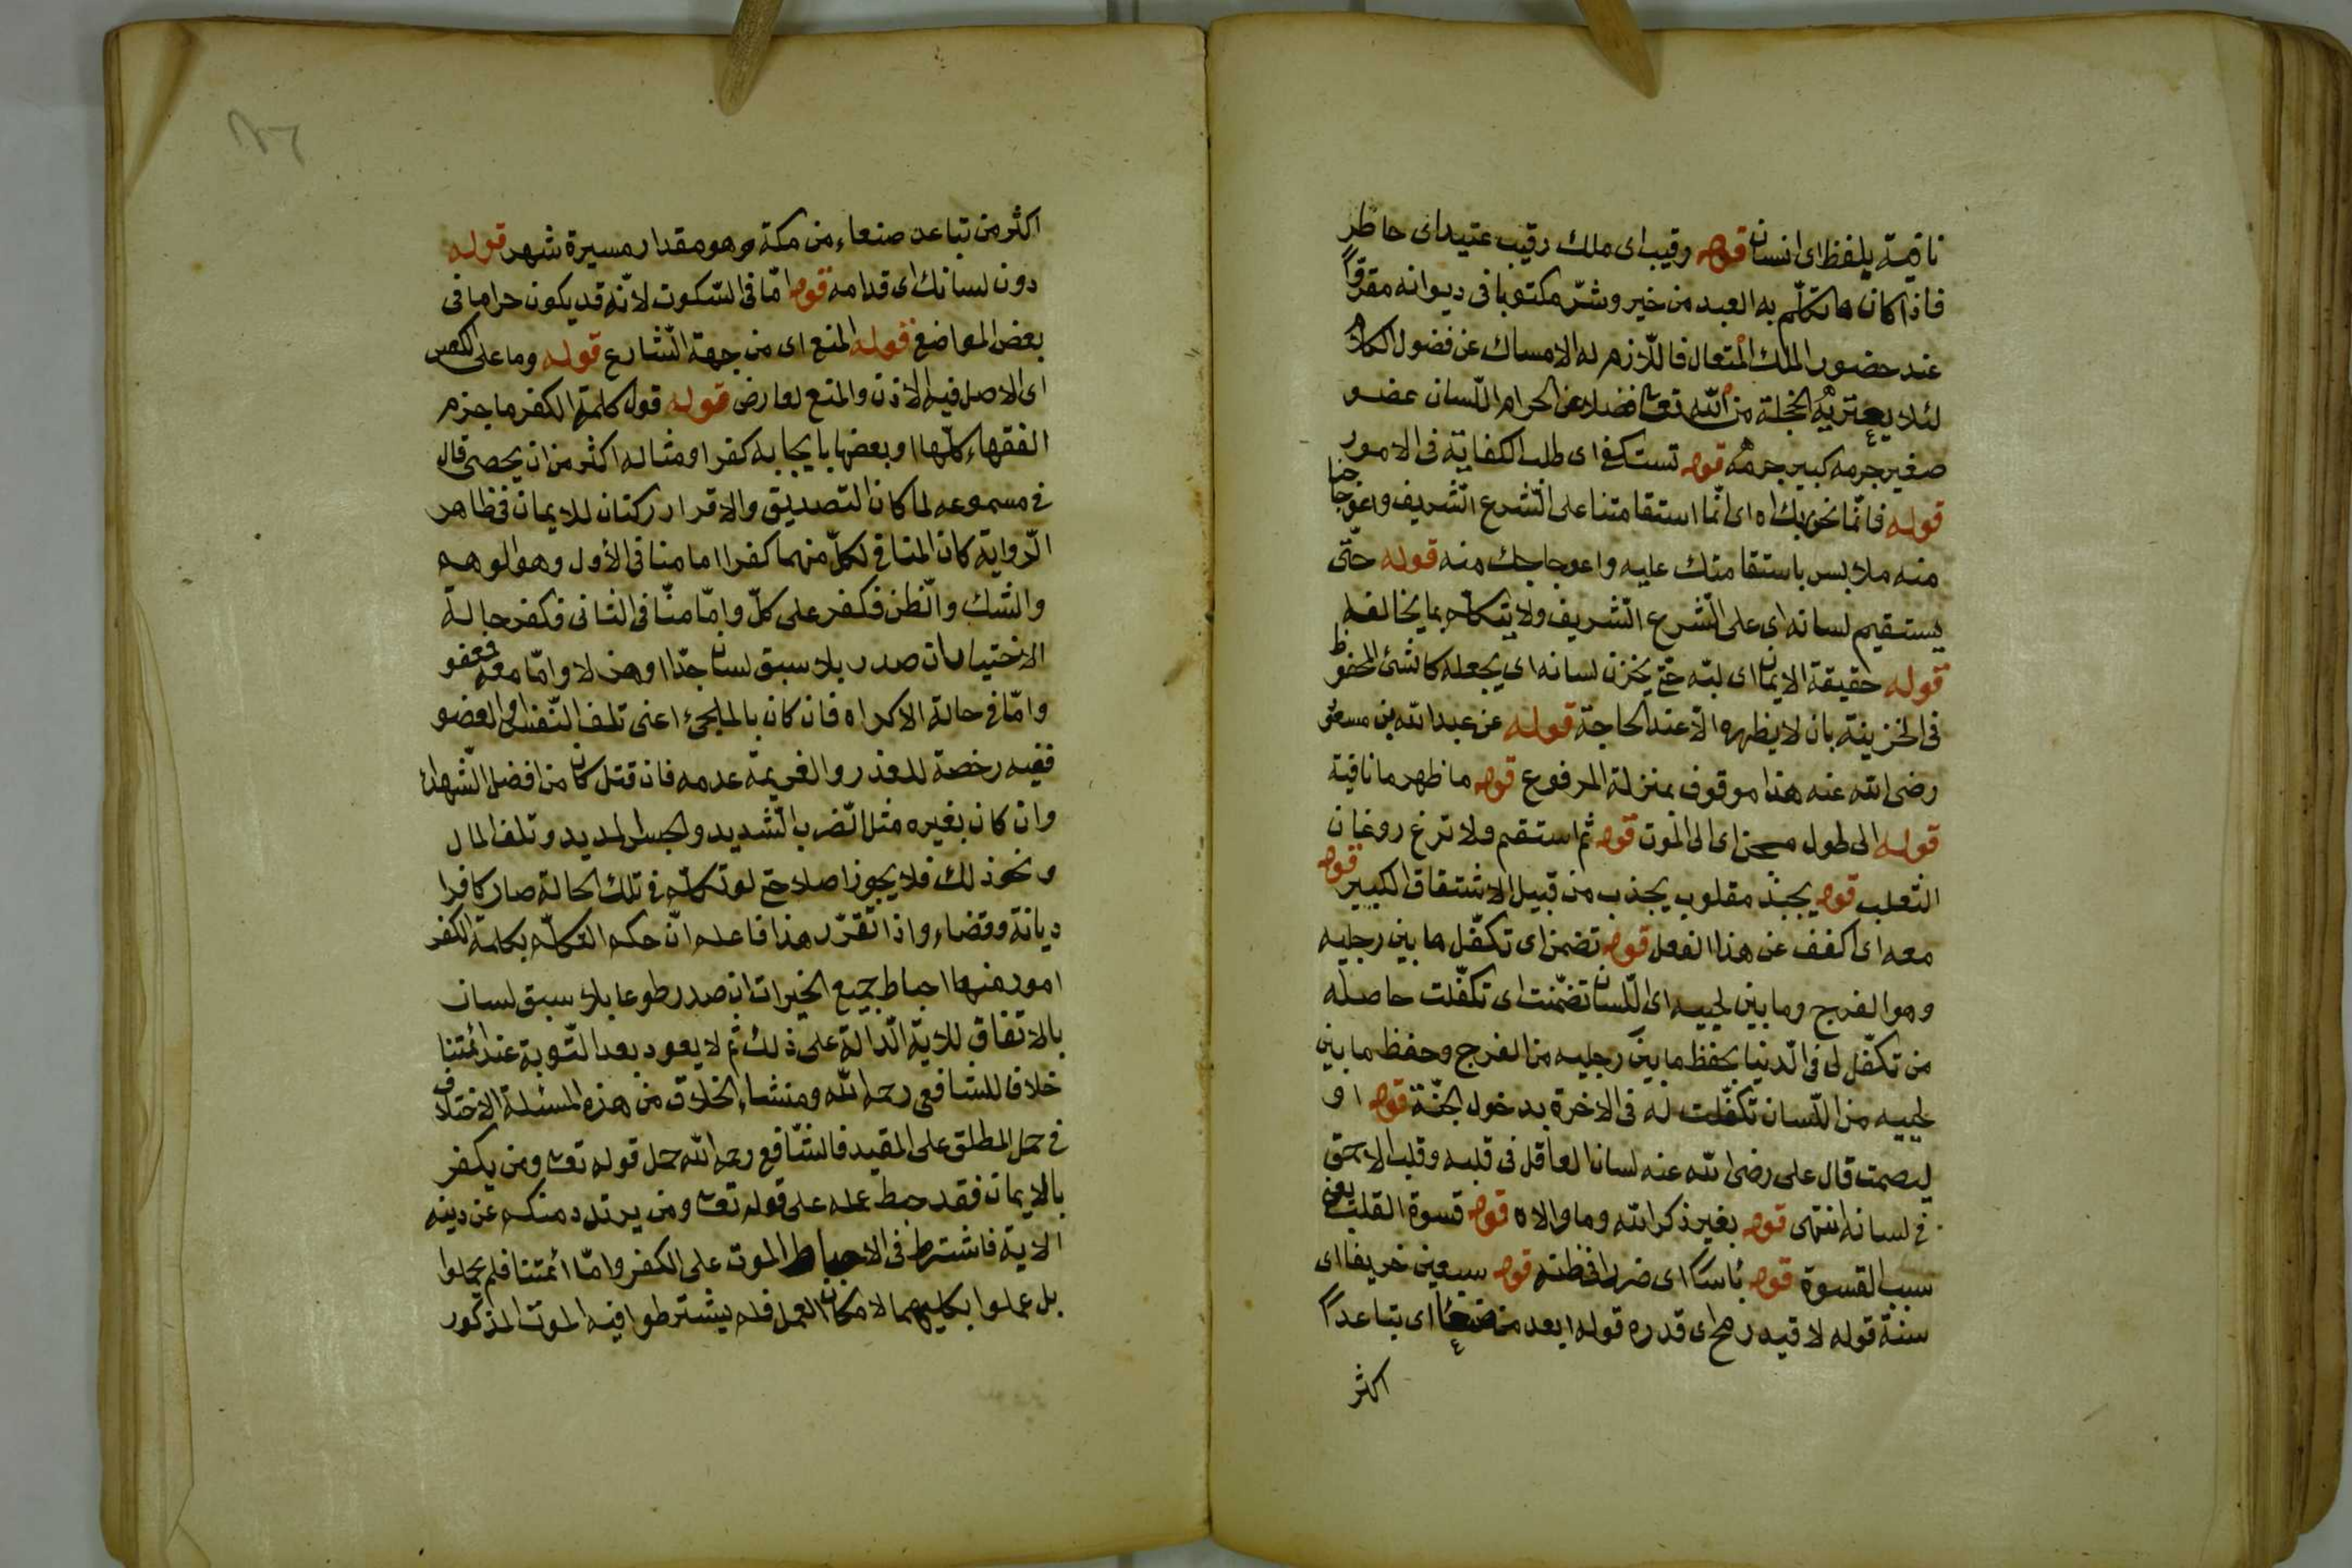 نافية يلفظ اى انسان قوله رقيب اى ملك رقيب عتيد اى حاظر
فاذا كان ما تكلّم به العبد من خير وشرّ مكتوبا فى ديوانه مقروّا
عند حضور الملك المتعال فاللّازم له الامساك عن فضول الكلام
لئلا يعتريه الخجلة من اللّه تعا فضلا عن الحرام اللّسان عضو
صغير جرمه كبير جرمه قوله تستكفى اى طلب الكفاية فى الامور
قوله فانّما نحن بك اه اى انّما استقامتنا على الشّرع الشّريف واعوجاجنا
منه ملابس باستقامتك عليه واعوجاجك منه قوله حتّى
يستقيم لسانه اى على الشّرع الشّريف ولا يتكلم بما يخالفه
قوله حقيقة الايمان اى لبّه حتى يخزن لسانه اى يجعله كالشئ المحفوظ
فى الخزينة بان لا يظهره الّا عند الحاجة قوله عن عبد اللّه بن مسعود
رضى اللّه عنه هذا موقوف بمنزلة المرفوع قوله ما ظهر ما نافية
قوله الى طول سجن اى الى الموت قوله ثم استقم ولا ترغ روغان
الثعلب قوله يجبذ مقلوب يجذب من قبيل الاشتقاق الكبير قوله
معه اى اكفف عن هذا الفعل قوله تضمن اى تكفّل ما بين رجليه
وهو الفرج وما بين لحييه اى اللّسان تضمّنت اى تكفّلت حاصله
من تكفّل لى فى الدّنيا بحفظ ما بين رجليه من الفرج وحفظ ما بين
لحييه من اللّسان تكفّلت له فى الاخرة بدخول الجنّة قوله او
ليصمت قال على رضى اللّه عنه لسان العاقل فى قلبه وقلب الاحمق
فى لسانه انتهى قوله بغير ذكر اللّه وما والاه قوله قسوة القلب يعنى
سبب القسوة قوله بأسا اى ضررا فظننه قوله سبعين خريفا اى
سنة قوله لا قيد رمح اى قدره قوله ابعد من صنعاء اى تباعدا
اكثر
اكثر من تباعد صنعاء من مكة وهو مقدار مسيرة شهر قوله
دون لسانك اى قدامه قوله امّا فى السّكوت لانّه قد يكون حراما فى
بعض المواضع قوله المنع اى من جهة الشّارع قوله وما على العكس
اى الاصل فيه الاذن والمنع لعارض قوله قول كلمة الكفر ما جزم
الفقهاء كلّها او بعضها بايجابه كفرا ومثاله اكثر من ان يحصى قال
فى مسموعه لما كان التصديق والاقرار ركنان للايمان فى ظاهر
الرّواية كان المنافى لكلّ منهما كفرا اما منافى الأول وهو الوهم
والشك والظن فكفر على كلّ وامّا منافى الثانى فكفر حالة
الاختيار ان صدر بلا سبق لسان جدّا او هزلا وامّا معه فعفو
وامّا فى حالة الاكراه فان كان بالملجئ اعنى تلف النّفس او العضو
ففيه رخصة للعذر والعزيمة عدمه فان قتل كان من افضل الشّهداء
وان كان بغيره مثل الضّرب الشّديد والحبس المديد وتلف المال
ونحو ذلك فلا يجوز اصلا حتى لو تكلّم فى تلك الحالة صار كافرا
ديانة وقضاء واذا تقرّر هذا فاعلم انّ حكم التكلّم بكلمة الكفر
امور منها احباط جميع الخيرات ان صدر طوعا بلا سبق لسان
بالاتفاق للاية الدّالة على ذلك ثم لا يعود بعد التّوبة عند ائمتنا
خلافا للشافعى رحمه اللّه ومنشاء الخلاف من هذه المسئلة الاختلاف
فى حمل المطلق على المقيد فالشّافعى رحمه اللّه حمل قوله تعا ومن يكفر
بالايمان فقد حبط عمله على قوله تعا ومن يرتدد منكم عن دينه
الاية فاشترط فى الاحباط الموت على الكفر وامّا ائمتنا فلم يحملوا
بل عملوا بكليهما لامكان العمل فلم يشترطوا فيه الموت المذكور